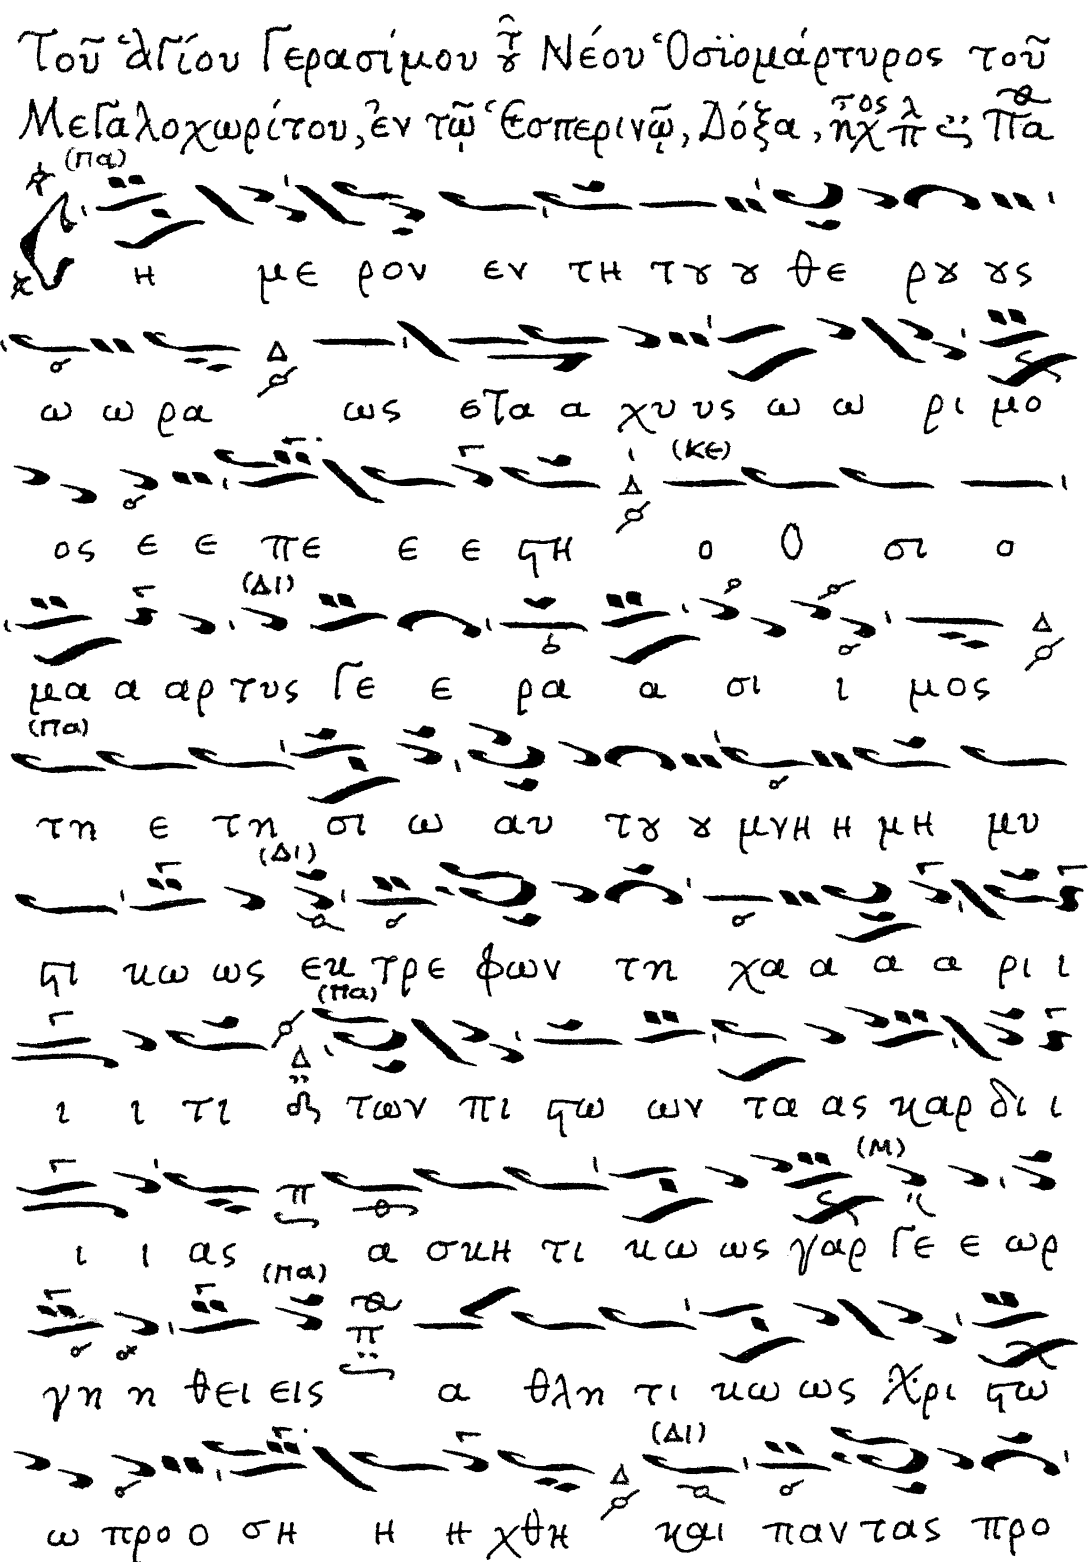 Τοῦ Ἁγίου Γερασίμου τοῦ Νέου Ὁσϊομάρτυρος τοῦ
Μεγαλοχωρίτου, ἐν τῷ Ἑσπερινῷ, Δόξα, ἦχος πλ. Πα
(Πα)
Ση με ρον εν τη του ου θε ρου ους
ω ω ρα ως στα α χυ υς ω ω ρι μο
(Κε)
ος ε ε πε ε ε στη ο Ο σι ο
(Δι)
μα α αρ τυς Γε ε ρα α σι ι μος
(Πα)
τη ε τη σι ω αυ του ου μνη η μη μυ
(Δι)
στι κω ως εκ τρε φων τη χα α α α ρι ι
(Πα)
ι ι τι των πι στω ων τα ας καρ δι ι
(Μ)
ι ι ας α σκη τι κω ως γαρ Γε ε ωρ
(Πα)
γη η θει εις α θλη τι κω ως Χρι στω
(Δι)
ω προ ο ση η η χθη και παν τας προ